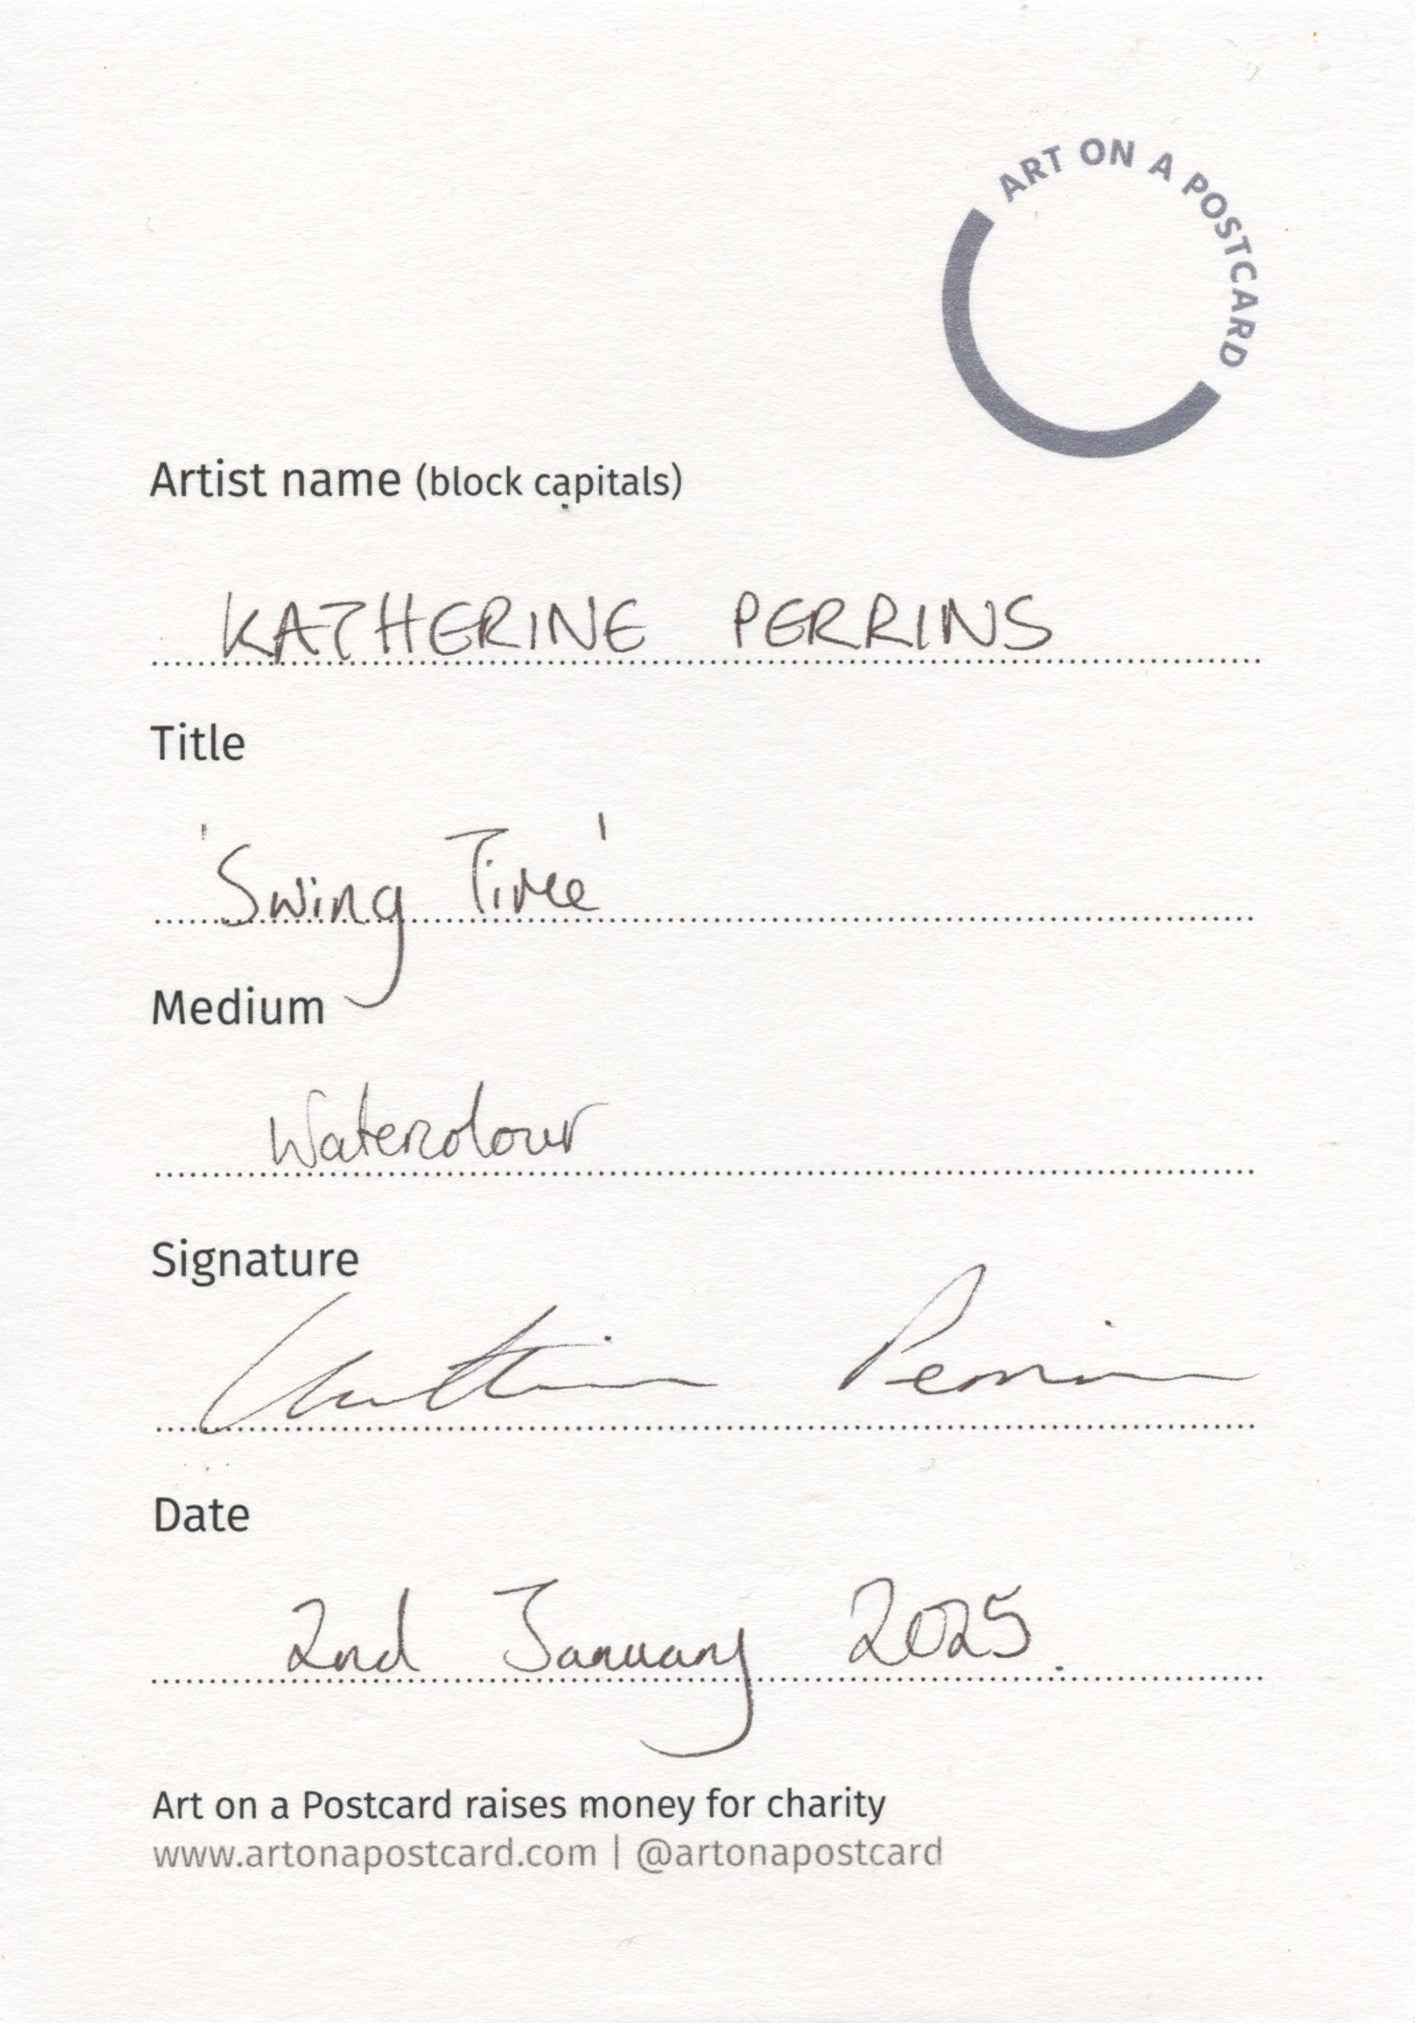 ART ON A POSTCARD
Artist name (block capitals)
KATHERINE PERRINS
Title
'Swing Time'
Medium
Watercolour
Signature
Katherine Perrins
Date
2nd January 2025.
Art on a Postcard raises money for charity
www.artonapostcard.com | @artonapostcard